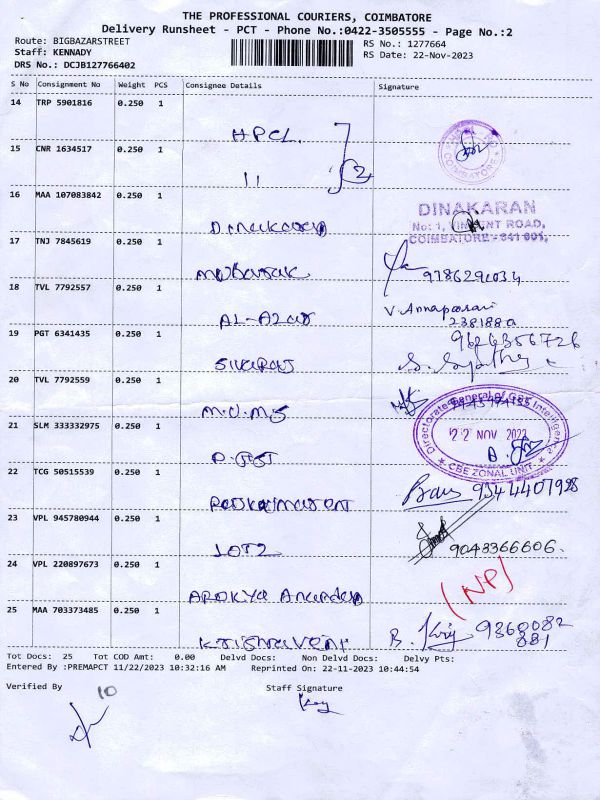 THE PROFESSIONAL COURIERS, COIMBATORE
Delivery Runsheet - PCT - Phone No.:0422-3505555 - Page No.:2
Route: BIGBAZARSTREET
Staff: KENNADY
DRS No.: DCJB127766402
RS No.: 1277664
RS Date: 22-Nov-2023
S No Consignment No Weight PCS Consignee Details Signature
14 TRP 5901816 0.250 1
HPCL
15 CNR 1634517 0.250 1
11
COIMBATORE
16 MAA 107083842 0.250 1
DINAKARAN
No: 1, VINCENT ROAD,
COIMBATORE - 641 001.
17 TNJ 7845619 0.250 1
Mubarak
9786291034
18 TVL 7792557 0.250 1
AL-Azar
V. Annapoorani
2381880
19 PGT 6341435 0.250 1
Sivaraj
9626356726
20 TVL 7792559 0.250 1
M.U.M.S
21 SLM 333332975 0.250 1
D. GST
Directorate General of GST Intelligence
22 NOV 2023
CBE ZONAL UNIT
22 TCG 50515539 0.250 1
9344407928
23 VPL 945780944 0.250 1
LOT2
9043366606.
24 VPL 220897673 0.250 1
AROKYA
(NP)
25 MAA 703373485 0.250 1
Krishnaveni
9360082
881
Tot Docs: 25 Tot COD Amt: 0.00 Delvd Docs: Non Delvd Docs: Delvy Pts:
Entered By :PREMAPCT 11/22/2023 10:32:16 AM Reprinted On: 22-11-2023 10:44:54
Verified By
10
Staff Signature